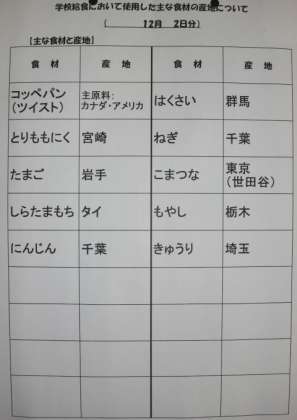 学校給食において使用した主な食材の産地について
( 12月 2日分)
【主な食材と産地】
食 材 産 地 食 材 産 地
コッペパン（ツイスト） 主原料：カナダ・アメリカ はくさい 群馬
とりももにく 宮崎 ねぎ 千葉
たまご 岩手 こまつな 東京（世田谷）
しらたまもち タイ もやし 栃木
にんじん 千葉 きゅうり 埼玉